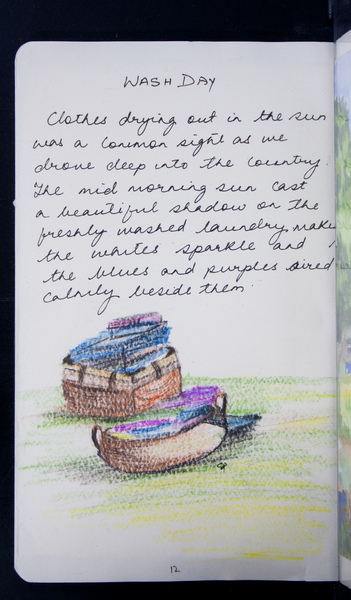 WASH DAY
Clothes drying out in the sun
was a common sight as we
drove deep into the country.
The mid morning sun cast
a beautiful shadow on the
freshly washed laundry, make
the whites sparkle and
the blues and purples aired
calmly beside them.
12